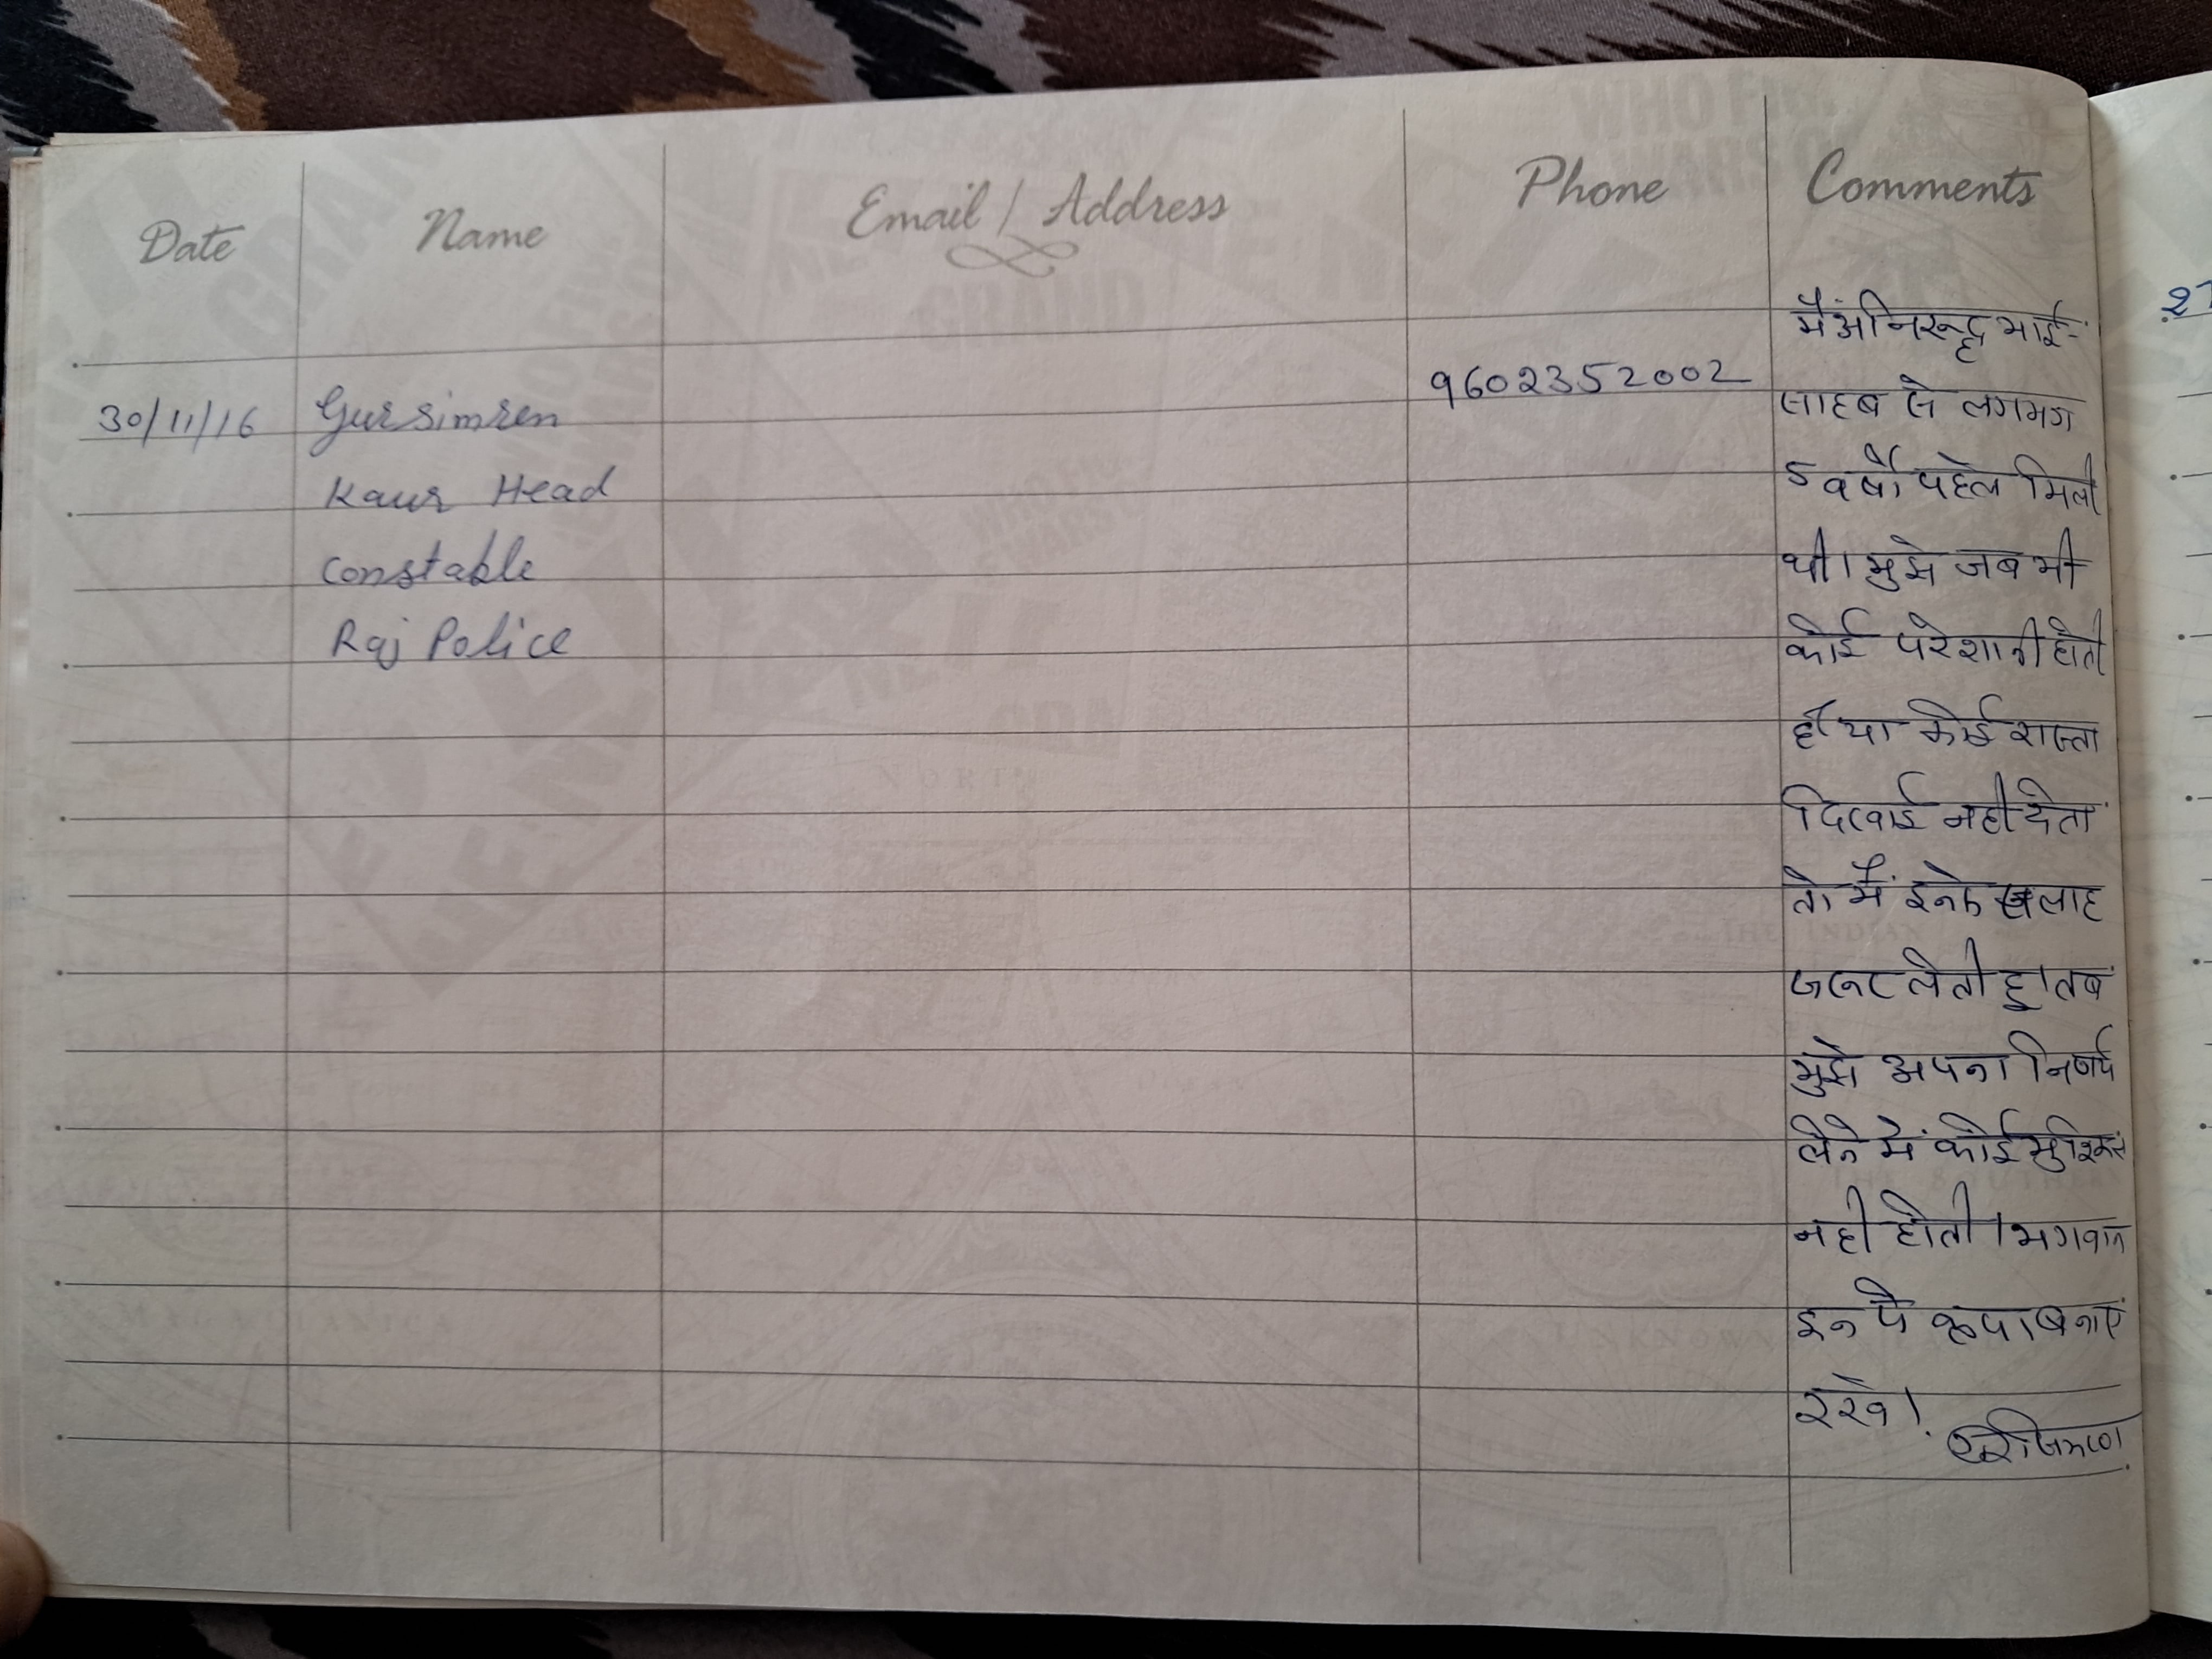 Date Name Email / Address Phone Comments
30/11/16 Gursimren 9602352002
Kaur Head
Constable
Raj Police
मैं अनिरूद्ध भाई-
साहब से लगभग
5 वर्षो पहले मिली
थी। मुझे जब भी
कोई परेशानी होती
है या कोई रास्ता
दिखाई नही देता
तो मैं इनसे सलाह
जरूर लेती हू। तब
मुझे अपना निर्णय
लेने में कोई मुश्किल
नही होती। भगवान
इन पे कृपा बनाए
रखे।
27